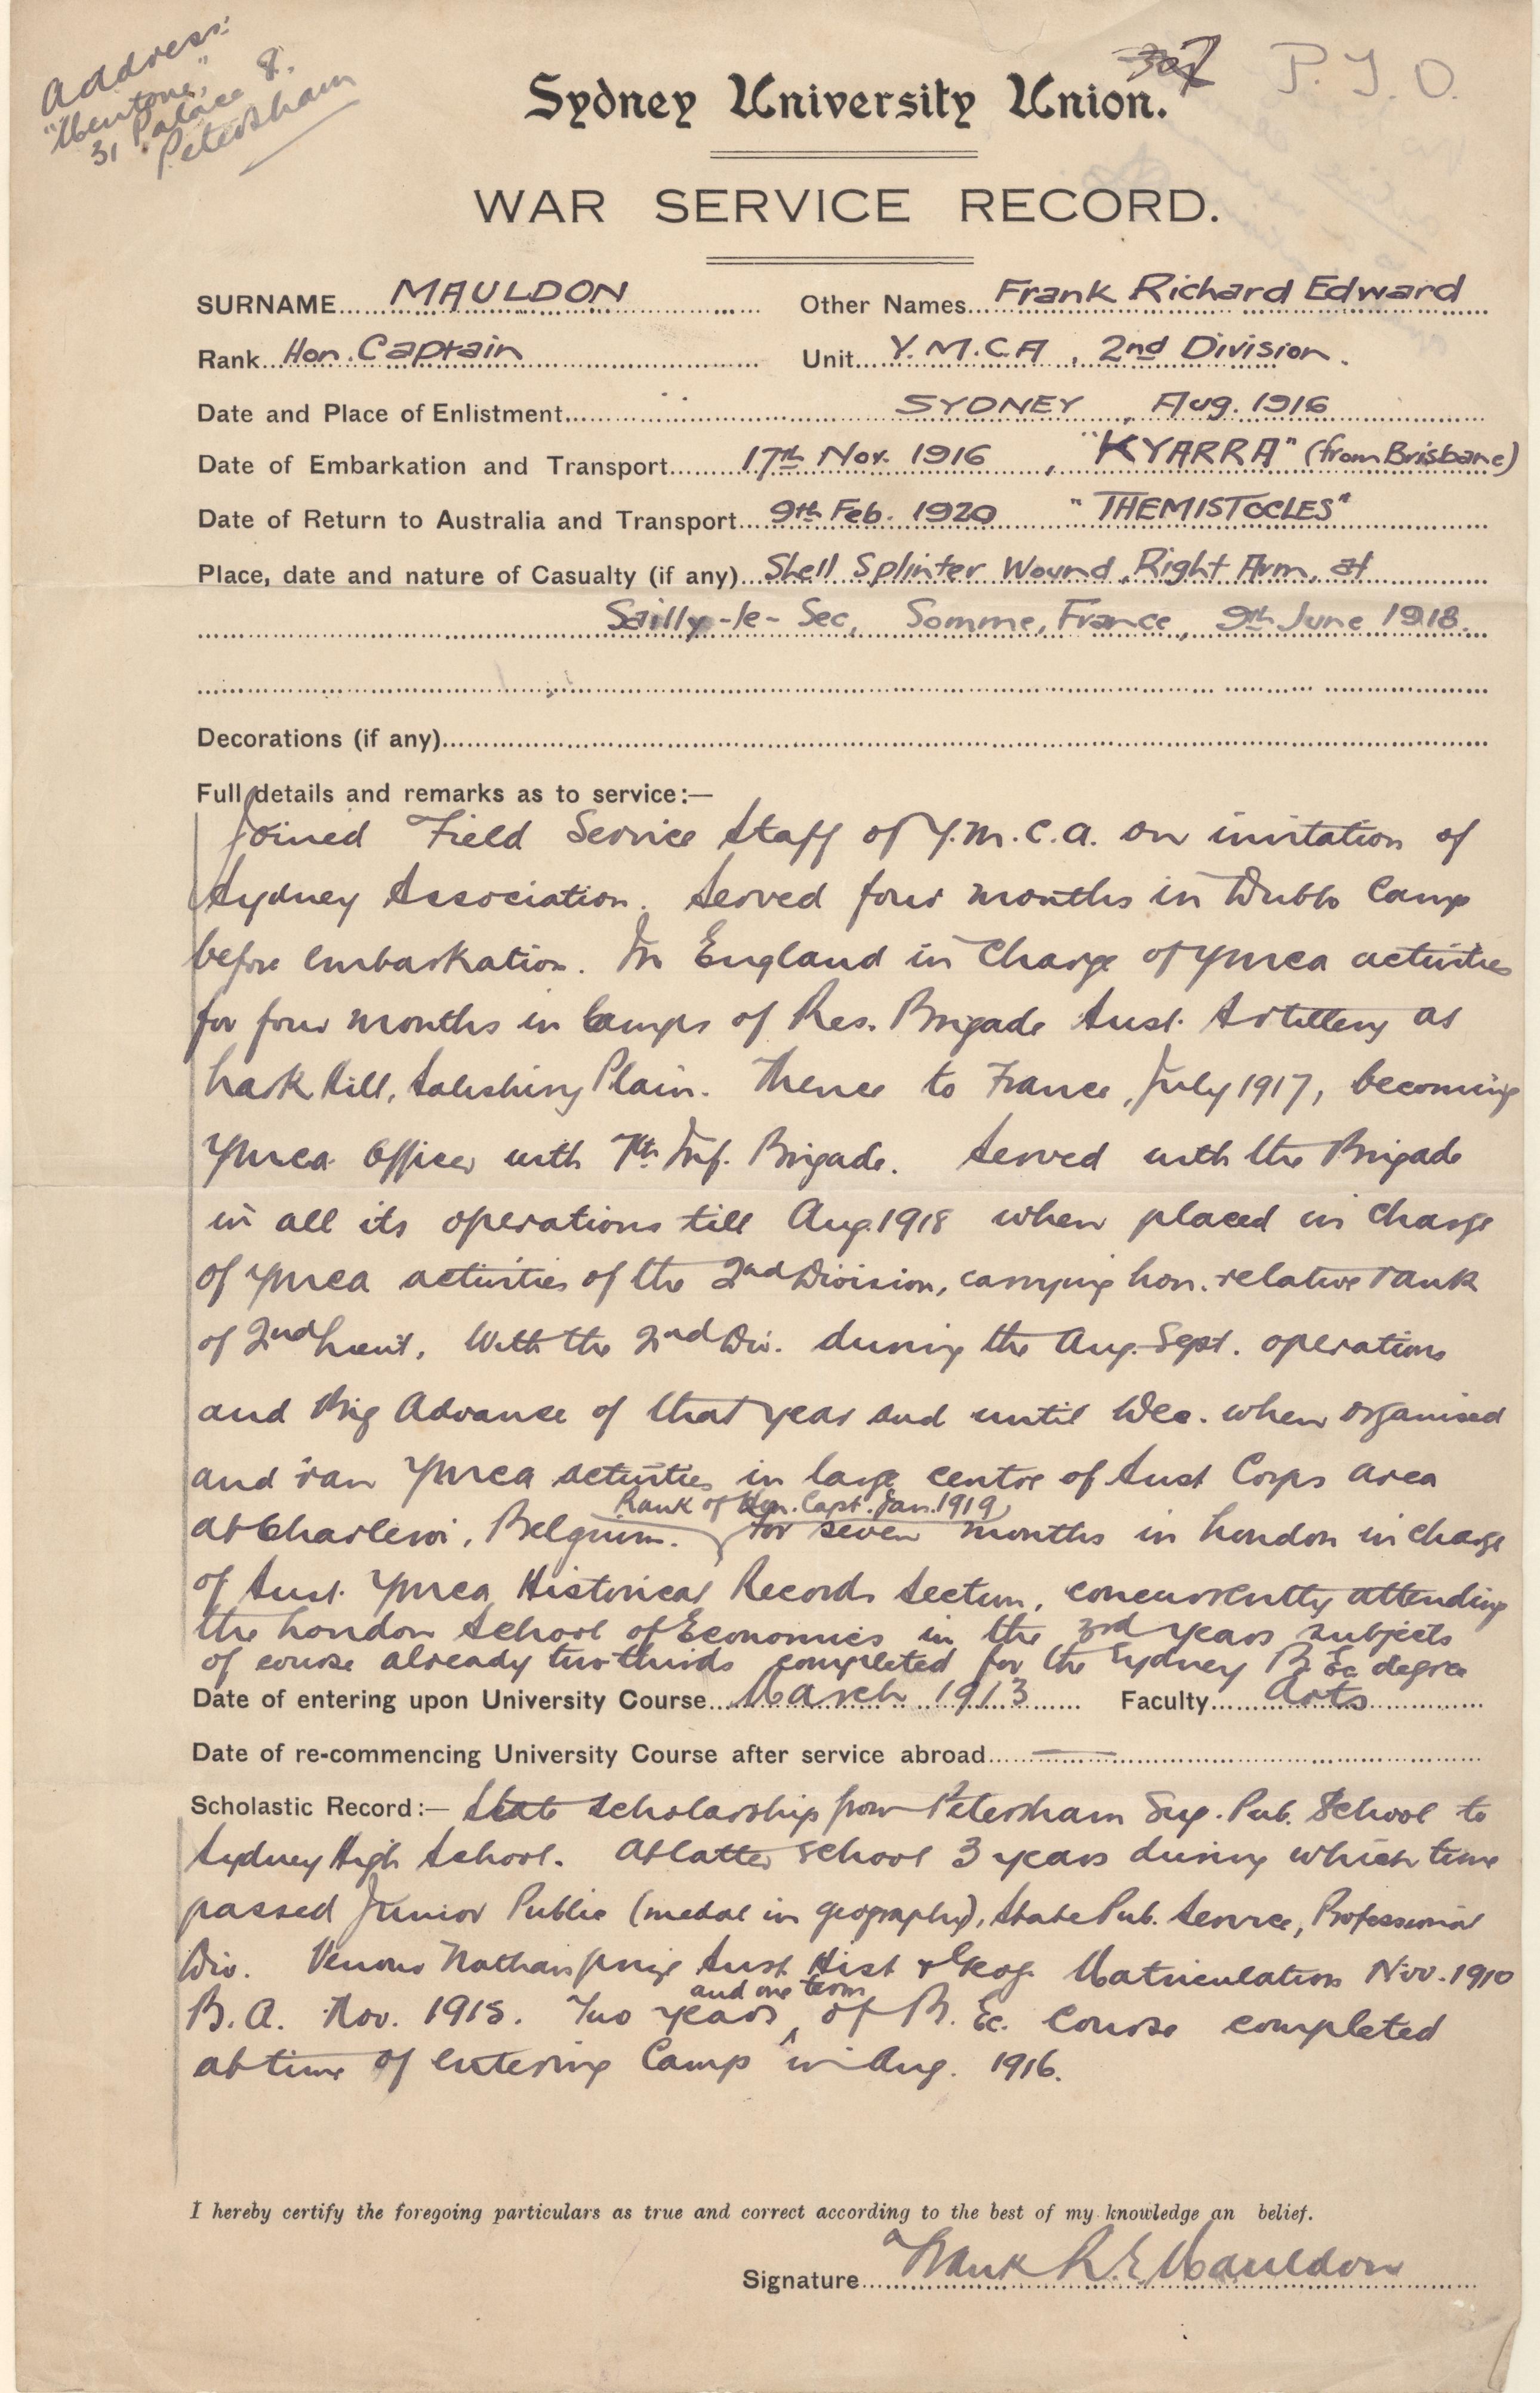 Address:
"Mentone,"
31 Palace St.
Petersham
307 P.T.O.
Sydney University Union.
WAR SERVICE RECORD.
SURNAME MAULDON Other Names Frank Richard Edward
Rank Hon. Captain Unit Y.M.C.A, 2nd Division.
Date and Place of Enlistment SYDNEY, Aug. 1916
Date of Embarkation and Transport 17th Nov. 1916, "KYARRA" (from Brisbane)
Date of Return to Australia and Transport 9th Feb. 1920 "THEMISTOCLES"
Place, date and nature of Casualty (if any) Shell Splinter Wound, Right Arm, at
Sailly-le-Sec, Somme, France, 9th June 1918.
Decorations (if any)
Full details and remarks as to service:—
Joined Field Service Staff of Y.M.C.A. on invitation of
Sydney Association. Served four months in Dubbo Camp
before embarkation. In England in charge of YMCA activities
for four months in Camps of Res. Brigade Aust. Artillery at
Lark Hill, Salisbury Plain. Thence to France, July 1917, becoming
YMCA Officer with 7th Inf. Brigade. Served with the Brigade
in all its operations till Aug. 1918 when placed in charge
of YMCA activities of the 2nd Division, carrying hon. relative rank
of 2nd Lieut. With the 2nd Div. during the Aug.-Sept. operations
and Big Advance of that year and until Dec. when organised
and ran YMCA activities in large centre of Aust Corps area
Rank of Hon. Capt. Jan. 1919
at Charleroi, Belgium. For seven months in London in charge
of Aust. YMCA Historical Records Section, concurrently attending
the London School of Economics in the 3rd years subjects
of course already two thirds completed for the Sydney B. Ec degree
Date of entering upon University Course March 1913 Faculty Arts
Date of re-commencing University Course after service abroad —
Scholastic Record:— State Scholarship from Petersham Sup. Pub. School to
Sydney High School. At latter school 3 years during which time
passed Junior Public (medal in geography), State Pub. Service, Professional
Div. Venour Nathan prize Aust Hist & Geog. Matriculation Nov. 1910
and one term
B.A. Nov. 1915. Two years of B. Ec. Course completed
at time of entering Camp in Aug. 1916.
I hereby certify the foregoing particulars as true and correct according to the best of my knowledge an belief.
Signature Frank R. E. Mauldon